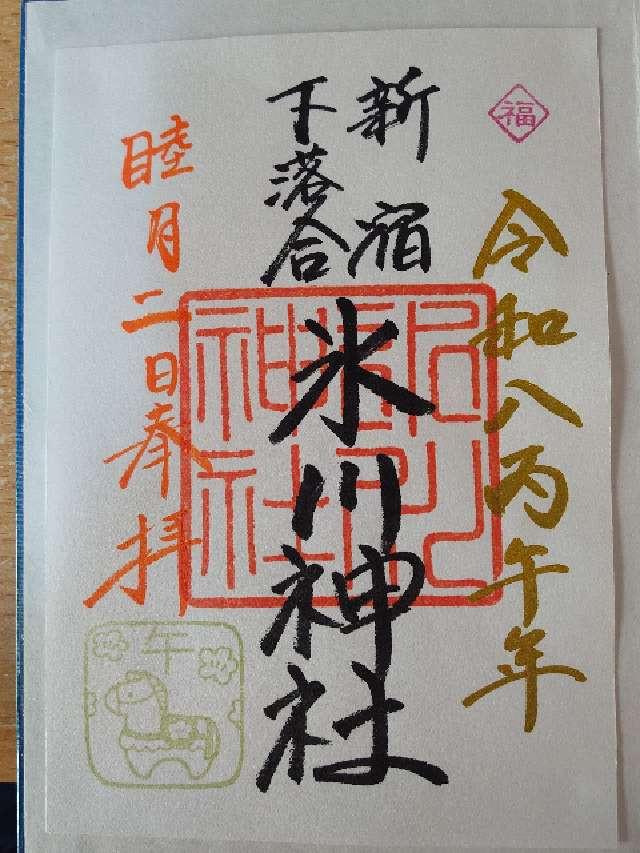 福
令和八丙午年
新宿
下落合
氷川神社
睦月二日奉拝
午